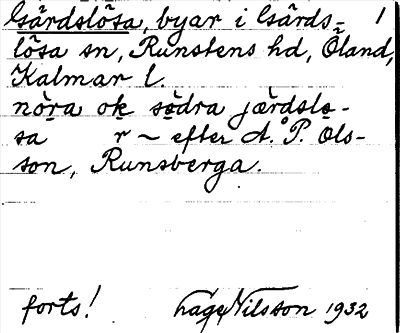 Gärdslösa, byar i Gärds- 1
lösa sn, Runstens hd, Öland,
Kalmar l.
nòra ok södra jærdslo-
sa r ~ efter A. P. Ols-
son, Runsberga.
forts! Nilsson 1932